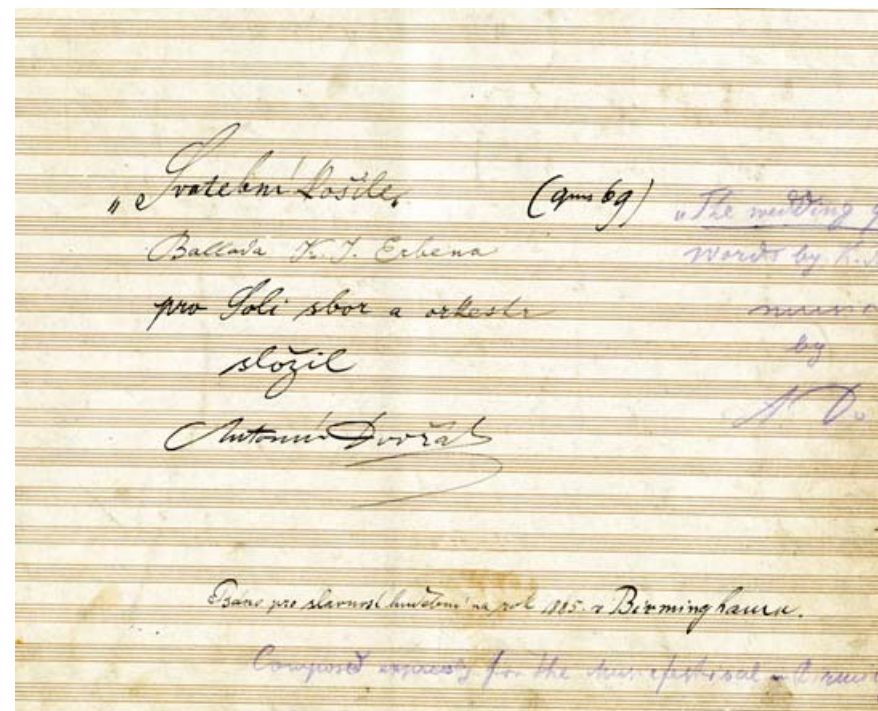 „Svatební košile„ (opus 69)
Ballada K. J. Erbena
pro Soli sbor a orkestr
složil
Antonín Dvořák
„The wedding
words by K.
by
A. Dv
Báno pro slavnost hudební na rok 1885. v Birminghamu.
Composed expressly for the mus. festival